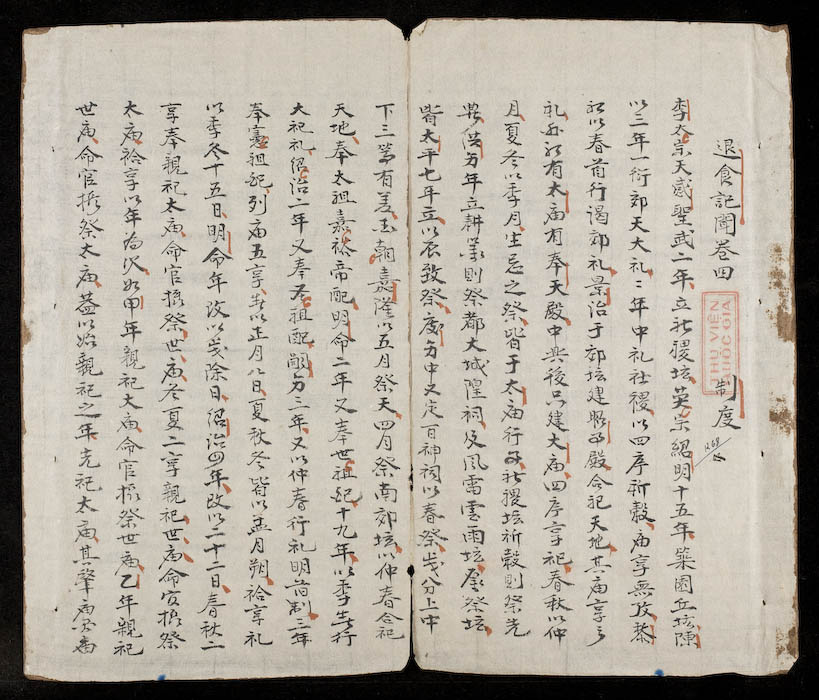 退食記聞卷四 制度
THƯ VIỆN
QUỐC GIA
李太宗天感聖武二年立社稷坛英宗紹明十五年築圜丘坛陳
以三年一衍郊天大礼二年中礼社稷以四序祈穀庙享無攷黎
初以春首行謁郊礼景治于郊坛建昭事殿合祀天地其庙享之
礼外初有太庙有奉天殿中興後只建大庙四序享祀春秋以仲
月夏冬以季月生忌之祭皆于太庙行外社稷坛祈穀則祭先
農洪年立耕則祭都大城隍祠及風雷雲雨坛厲祭坛
皆太平七年立以辰致祭處分中又定百神祠以春祭歲分上中
下三等有差本朝嘉隆以五月祭天四月祭南郊坛以仲春合祀
天地奉太祖嘉裕帝配明命二年又奉世祖配十九年以季春行
大祀礼紹治二年又奉圣祖配嗣三年又以仲春行礼明前制三年
奉憲祖配列庙五享春以正月八日夏秋冬皆以孟月朔祫享礼
以季冬十五日明命年改以歲除日紹治四年改以二十二日春秋二
享奉親祀太庙命官攝祭世庙冬夏二享親祀世庙命官攝祭
太庙祫享以年為次如甲年親祀太庙命官攝祭世庙乙年親祀
世庙命官攝祭太庙蓋以始親祀之年先祀太庙其肇庙